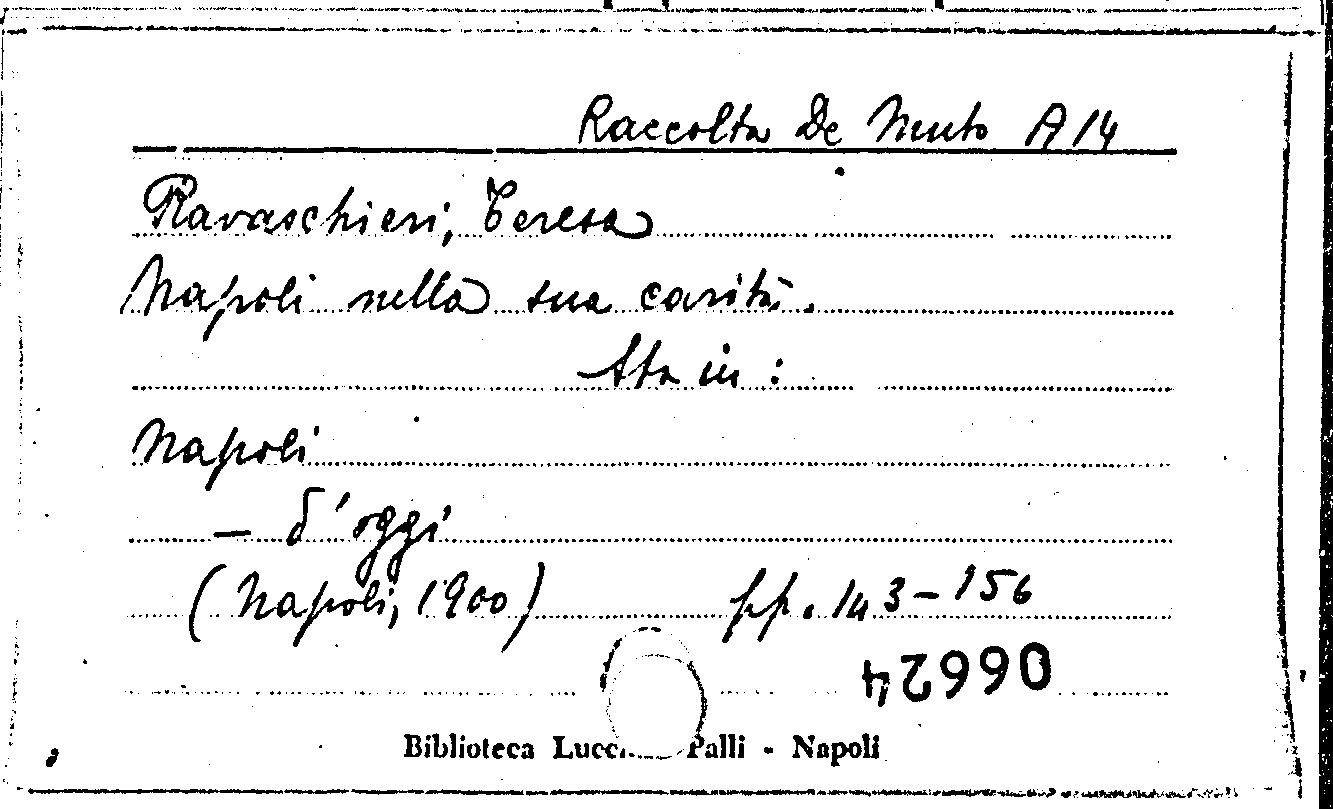 Raccolta De Muto A 14
Ravaschieri, Teresa
Napoli nella sua carità.
Sta in :
Napoli
— d'oggi
(Napoli, 1900) pp. 143-156
06624
Biblioteca Palli - Napoli